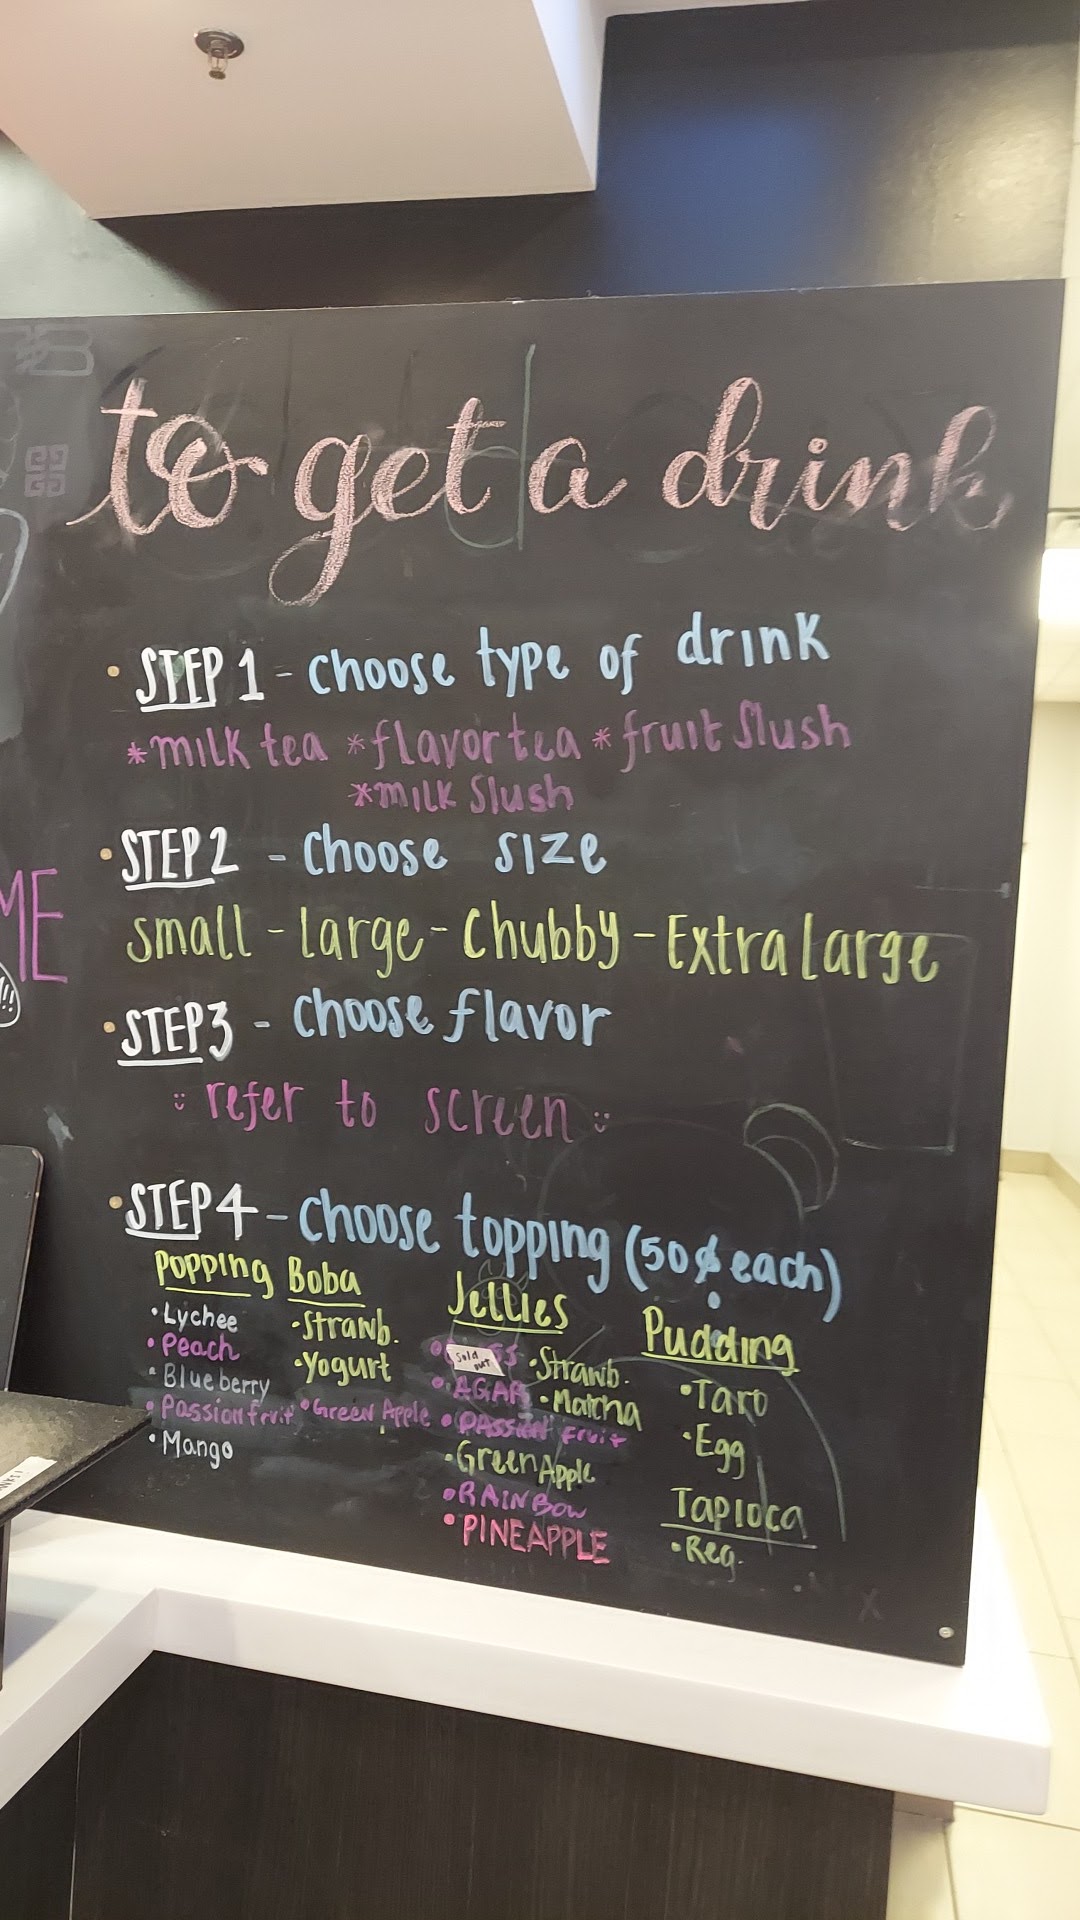 to get a drink
• STEP 1 - choose type of drink
*milk tea *flavor tea *fruit slush
*milk slush
• STEP2 - choose size
small - large - Chubby - Extra large
• STEP3 - choose flavor
refer to screen
• STEP4 - choose topping (50¢ each)
Popping Boba
• Lychee
• Peach
• Blueberry
• Passion fruit
• Mango
• Strawb.
• Yogurt
• Green Apple
Jellies
sold out
• AGAR
• PASSION fruit
• Green Apple
• RAINBOW
• PINEAPPLE
• Strawb.
• Matcha
Pudding
• Taro
• Egg
Tapioca
• Reg.
ME
!!